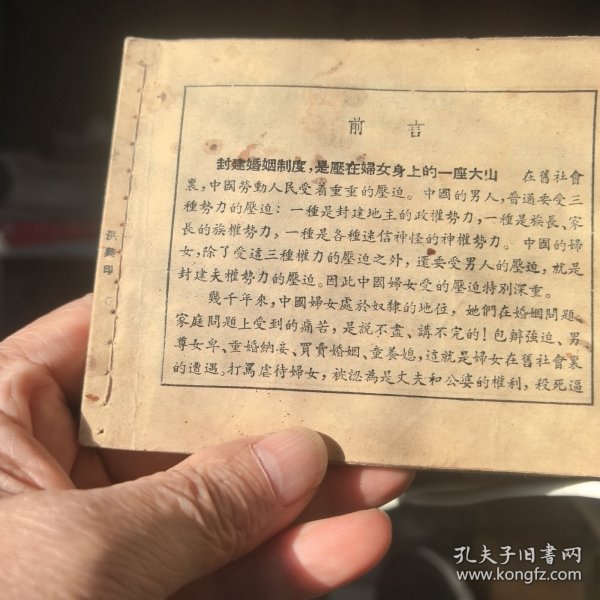 前言
封建婚姻制度，是壓在婦女身上的一座大山　在舊社會
裏，中國勞動人民受着重重的壓迫。中國的男人，普通要受三
種勢力的壓迫：一種是封建地主的政權勢力，一種是族長、家
長的族權勢力，一種是各種迷信神怪的神權勢力。中國的婦
女，除了受這三種權力的壓迫之外，還要受男人的壓迫，就是
封建夫權勢力的壓迫。因此中國婦女受的壓迫特別深重。
幾千年來，中國婦女處於奴隸的地位，她們在婚姻問題、
家庭問題上受到的痛苦，是說不盡、講不完的！包辦強迫、男
尊女卑、重婚納妾、買賣婚姻、童養媳，這就是婦女在舊社會裏
的遭遇。打罵虐待婦女，被認為是丈夫和公婆的權利，殺死逼
印
孔夫子旧书网
www.kongfz.com